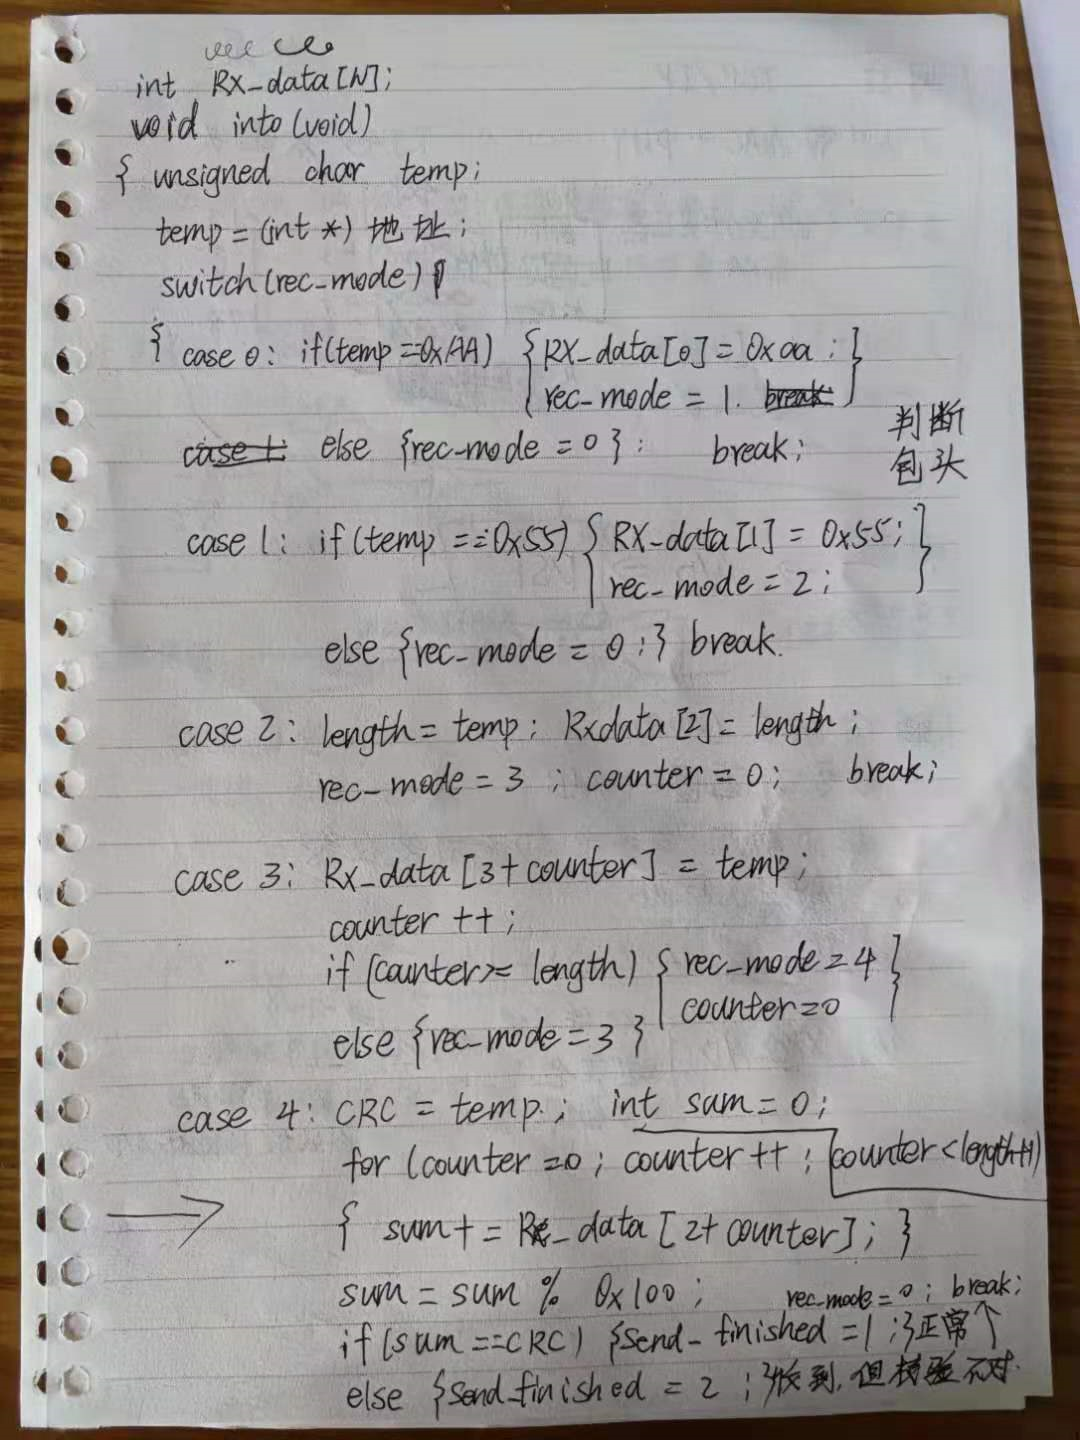 int RX_data[N];
void into(void)
{ unsigned char temp;
temp = (int *) 地址;
switch(rec_mode)
{ case 0: if(temp==0xAA) {RX_data[0] = 0xaa;
rec_mode = 1. break }
case 1: else {rec_mode = 0}; break;
判断
包头
case 1: if(temp ==0x55) { RX_data[1] = 0x55; }
rec_mode = 2;
else {rec_mode = 0;} break.
case 2: length = temp; Rxdata[2] = length;
rec_mode = 3 ; counter = 0; break;
case 3: Rx_data [3+counter] = temp;
counter ++;
if (counter>= length) { rec_mode=4 }
counter=0
else {rec_mode=3 }
case 4: CRC = temp; int sum = 0;
for (counter =0 ; counter ++ ; counter < length+1)
{ sum + = Rx_data [2+ counter]; }
sum = sum % 0x100 ; rec_mode = 0; break;
if (sum ==CRC) {Send_finished =1 ;}正常
else {Send_finished = 2 ;}收到,但校验不对.